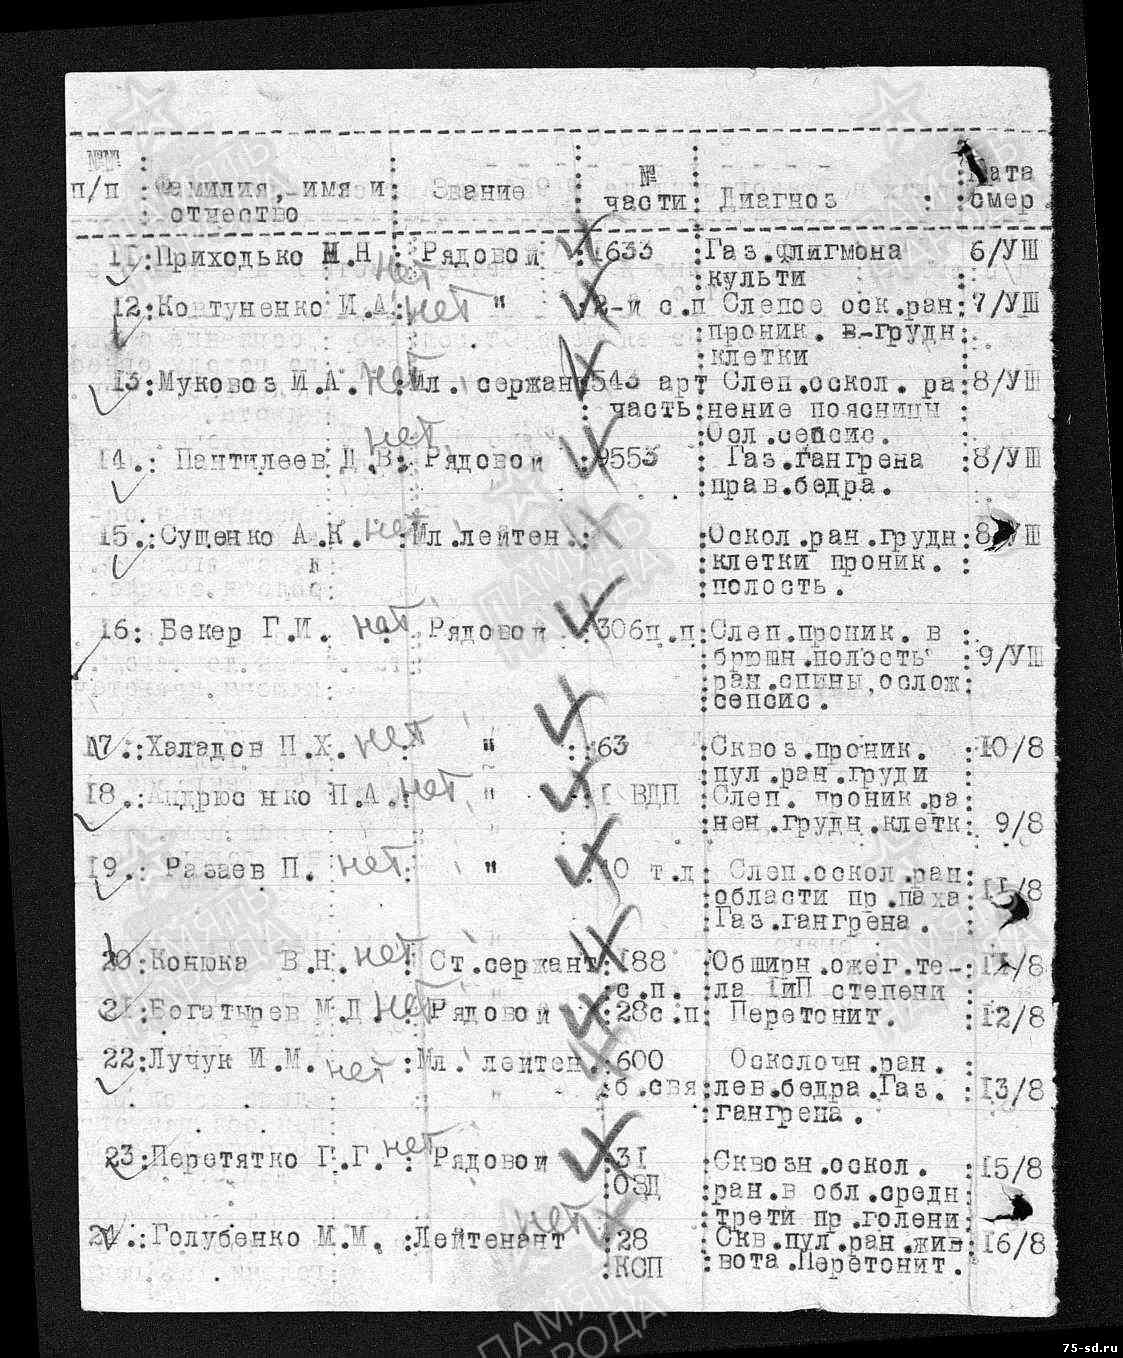 №№ п/п : Фамилия, имя и отчество : Звание : № части : Диагноз : Дата смер.
11.:Приходько М.Н. нет :Рядовой :1633 :Газ.флигмона :6/УШ
культи
12:Ковтуненко И.А. нет : " :2-й с.п :Слепое оск.ран:7/УШ
:проник. в-грудн:
:клетки
13:Муковоз И.А. нет :Мл. сержант:543 арт :Слеп.оскол. ра:8/УШ
часть:нение поясницы
:Осл.сепсис.
14.: Пантилеев Д.В. нет :Рядовой :9553 : Газ.гангрена :8/УШ
:прав.бедра.
15.:Сущенко А.К. нет :Мл.лейтен.: :Оскол.ран.грудн:8/УШ
:клетки проник. :
:полость.
16: Бекер Г.И. нет :Рядовой :306п.п:Слеп.проник. в :
:брюшн.полость :9/УШ
:ран.спины,ослож:
:сепсис.
17.:Халадов П.Х. нет : " :63 :Сквоз.проник. :10/8
:пул.ран.груди
18.:Андрюс нко П.А. нет : " :1 ВДП :Слеп. проник.ра:
:нен.грудн.клетк: 9/8
19.: Разаев П. нет : " :10 т.д: Слеп.оскол.ран:
:области пр.паха :11/8
:Газ.гангрена.
20:Конюка В.Н. нет :Ст.сержант:188 :Обширн.ожег.те-:11/8
:с.п. :ла IиП степени
21.:Богатырев М.Д. нет :Рядовой :28с.п: Перетонит. :12/8
22:Лучук И.М. нет :Мл. лейтен.:600 : Осколочн.ран.
:б.свя:лев.бедра.Газ. :13/8
:гангрена.
23:Перетятко Г.Г. нет :Рядовой :31 :Сквозн.оскол. :15/8
:ОЗД :ран.в обл.средн:
:трети пр.голени:
24.:Голубенко М.М. нет :Лейтенант :28 :Скв.пул.ран.жив:16/8
:КСП :вота.Перетонит.
ПАМЯТЬ НАРОДА
75-sd.ru